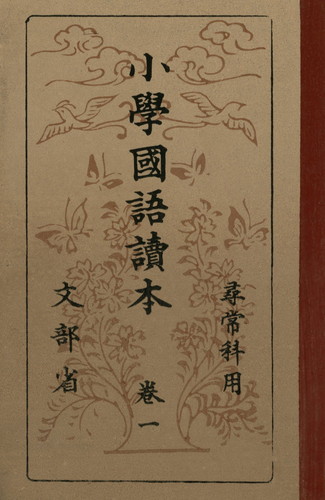 尋常科用
小學國語讀本
卷一
文部省